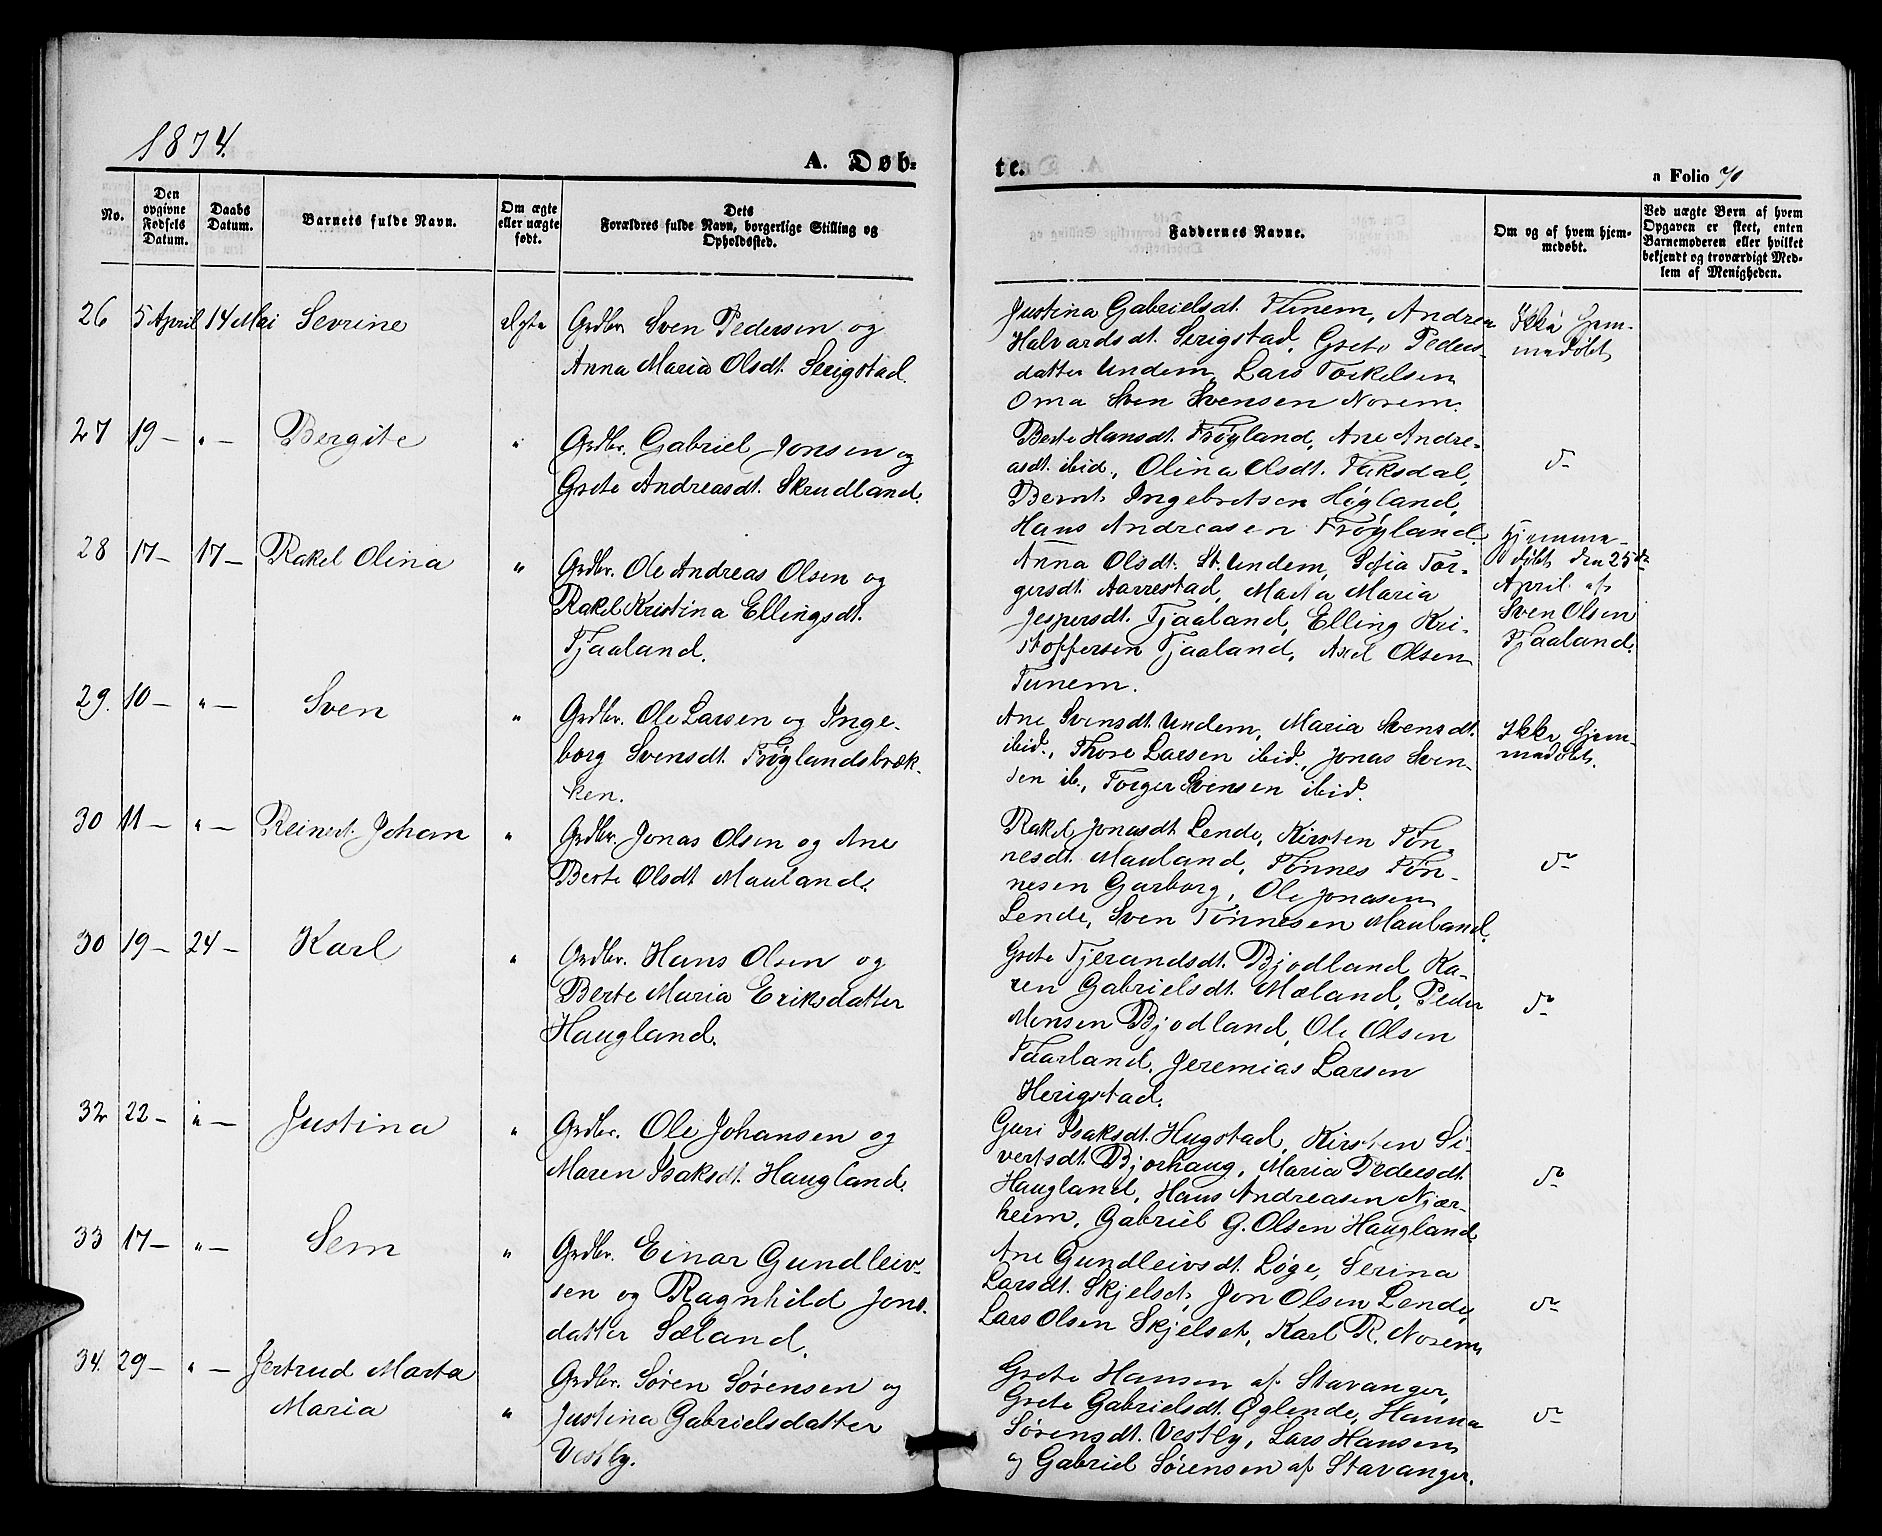 1874.
A. Døb-
te.
n Folio
No.
Den opgivne Fødsels Datum.
Daabs Datum.
Barnets fulde Navn.
Om ægte eller uægte født.
Dets Forældres fulde Navn, borgerlige Stilling og Opholdssted.
Faddernes Navne.
Om og af hvem hjemmedøbt.
Ved uægte Børn af hvem Opgaven er skeet, enten Barnemoderen eller hvilket bekjendt og troværdigt Medlem af Menigheden.
26 5 April 14 Mai Sevrine Ægte Grdbr. Sven Pedersen og
Anna Maria Olsdt. Serigstad.
Justina Gabrielsdt. Tunem, Andrea
Halvardsdt. Serigstad, Grete Peders-
datter Undem, Lars Torkelsen
Oma Sven Svensen Norem.
Ikke hjem-
medøbt
27 19 — " — Bergite " Grdbr. Gabriel Jonsen og
Grete Andreasdt. Skrudland.
Berte Hansdt. Frøyland, Ane Andre-
asdt. ibid., Olina Olsdt. Taksdal,
Bernt Ingebretsen Høgland,
Hans Andreasen Frøyland.
do
28 17 — 17 — Rakel Olina " Grdbr. Ole Andreas Olsen og
Rakel Kristina Ellingsdt.
Tjaaland.
Anna Olsdt. St. Undem, Sofia Tor-
gersdt. Aarrestad, Marta Maria
Jespersdt. Tjaaland, Elling Kri-
stoffersen Tjaaland, Axel Olsen
Tunem.
Hjemme-
døbt den 25de
April af
Sven Olsen
Tjaaland.
29. 10 — " — Sven " Grdbr. Ole Larsen og Inge-
borg Svensdt. Frøylandsbræk-
ken.
Ane Svensdt. Undem, Maria Svensdt.
ibid., Thore Larsen ibid., Jonas Sven-
sen ib., Torger Svensen ibid.
Ikke hjem-
medøbt.
30 11 — " — Reinert Johan " Grdbr. Jonas Olsen og Ane
Berte Olsdt Mauland.
Rakel Jonasdt. Lende, Kirsten Tøn-
nesdt. Mauland, Tønnes Tøn-
nesen Garborg, Ole Jonasen
Lende, Sven Tønnesen Mauland.
do
30 19 — 24 — Karl " Grdbr. Hans Olsen og
Berte Maria Eriksdatter
Haugland.
Grete Tjerandsdt. Bjodland, Ka-
ren Gabrielsdt. Mæland, Peder
Monsen Bjodland, Ole Olsen
Taarland, Jeremias Larsen
Herigstad.
do
32 22 — " — Justina " Grdbr. Ole Johansen og
Maren Isaksdt. Haugland.
Guri Isaksdt. Hugstad, Kirsten Si-
vertsdt. Bjorhaug, Maria Pedersdt.
Haugland, Hans Andreasen Njær-
heim, Gabriel G. Olsen Haugland
do
33 17 — " — Sem " Grdbr. Einar Gundleiv-
sen og Ragnhild Jons-
datter Sæland.
Ane Gundleivsdt. Løge, Serina
Larsdt. Skjelset, Jon Olsen Lende,
Lars Olsen Skjelset, Karl R. Norem
do
34. 29 — " — Jertrud Marta
Maria " Grdbr. Søren Sørensen og
Justina Gabrielsdatter
Vestly.
Grete Hansen af Stavanger,
Grete Gabrielsdt. Øglende, Hanna
Sørensdt. Vestly, Lars Hansen
og Gabriel Sørensen af Stavanger.
do